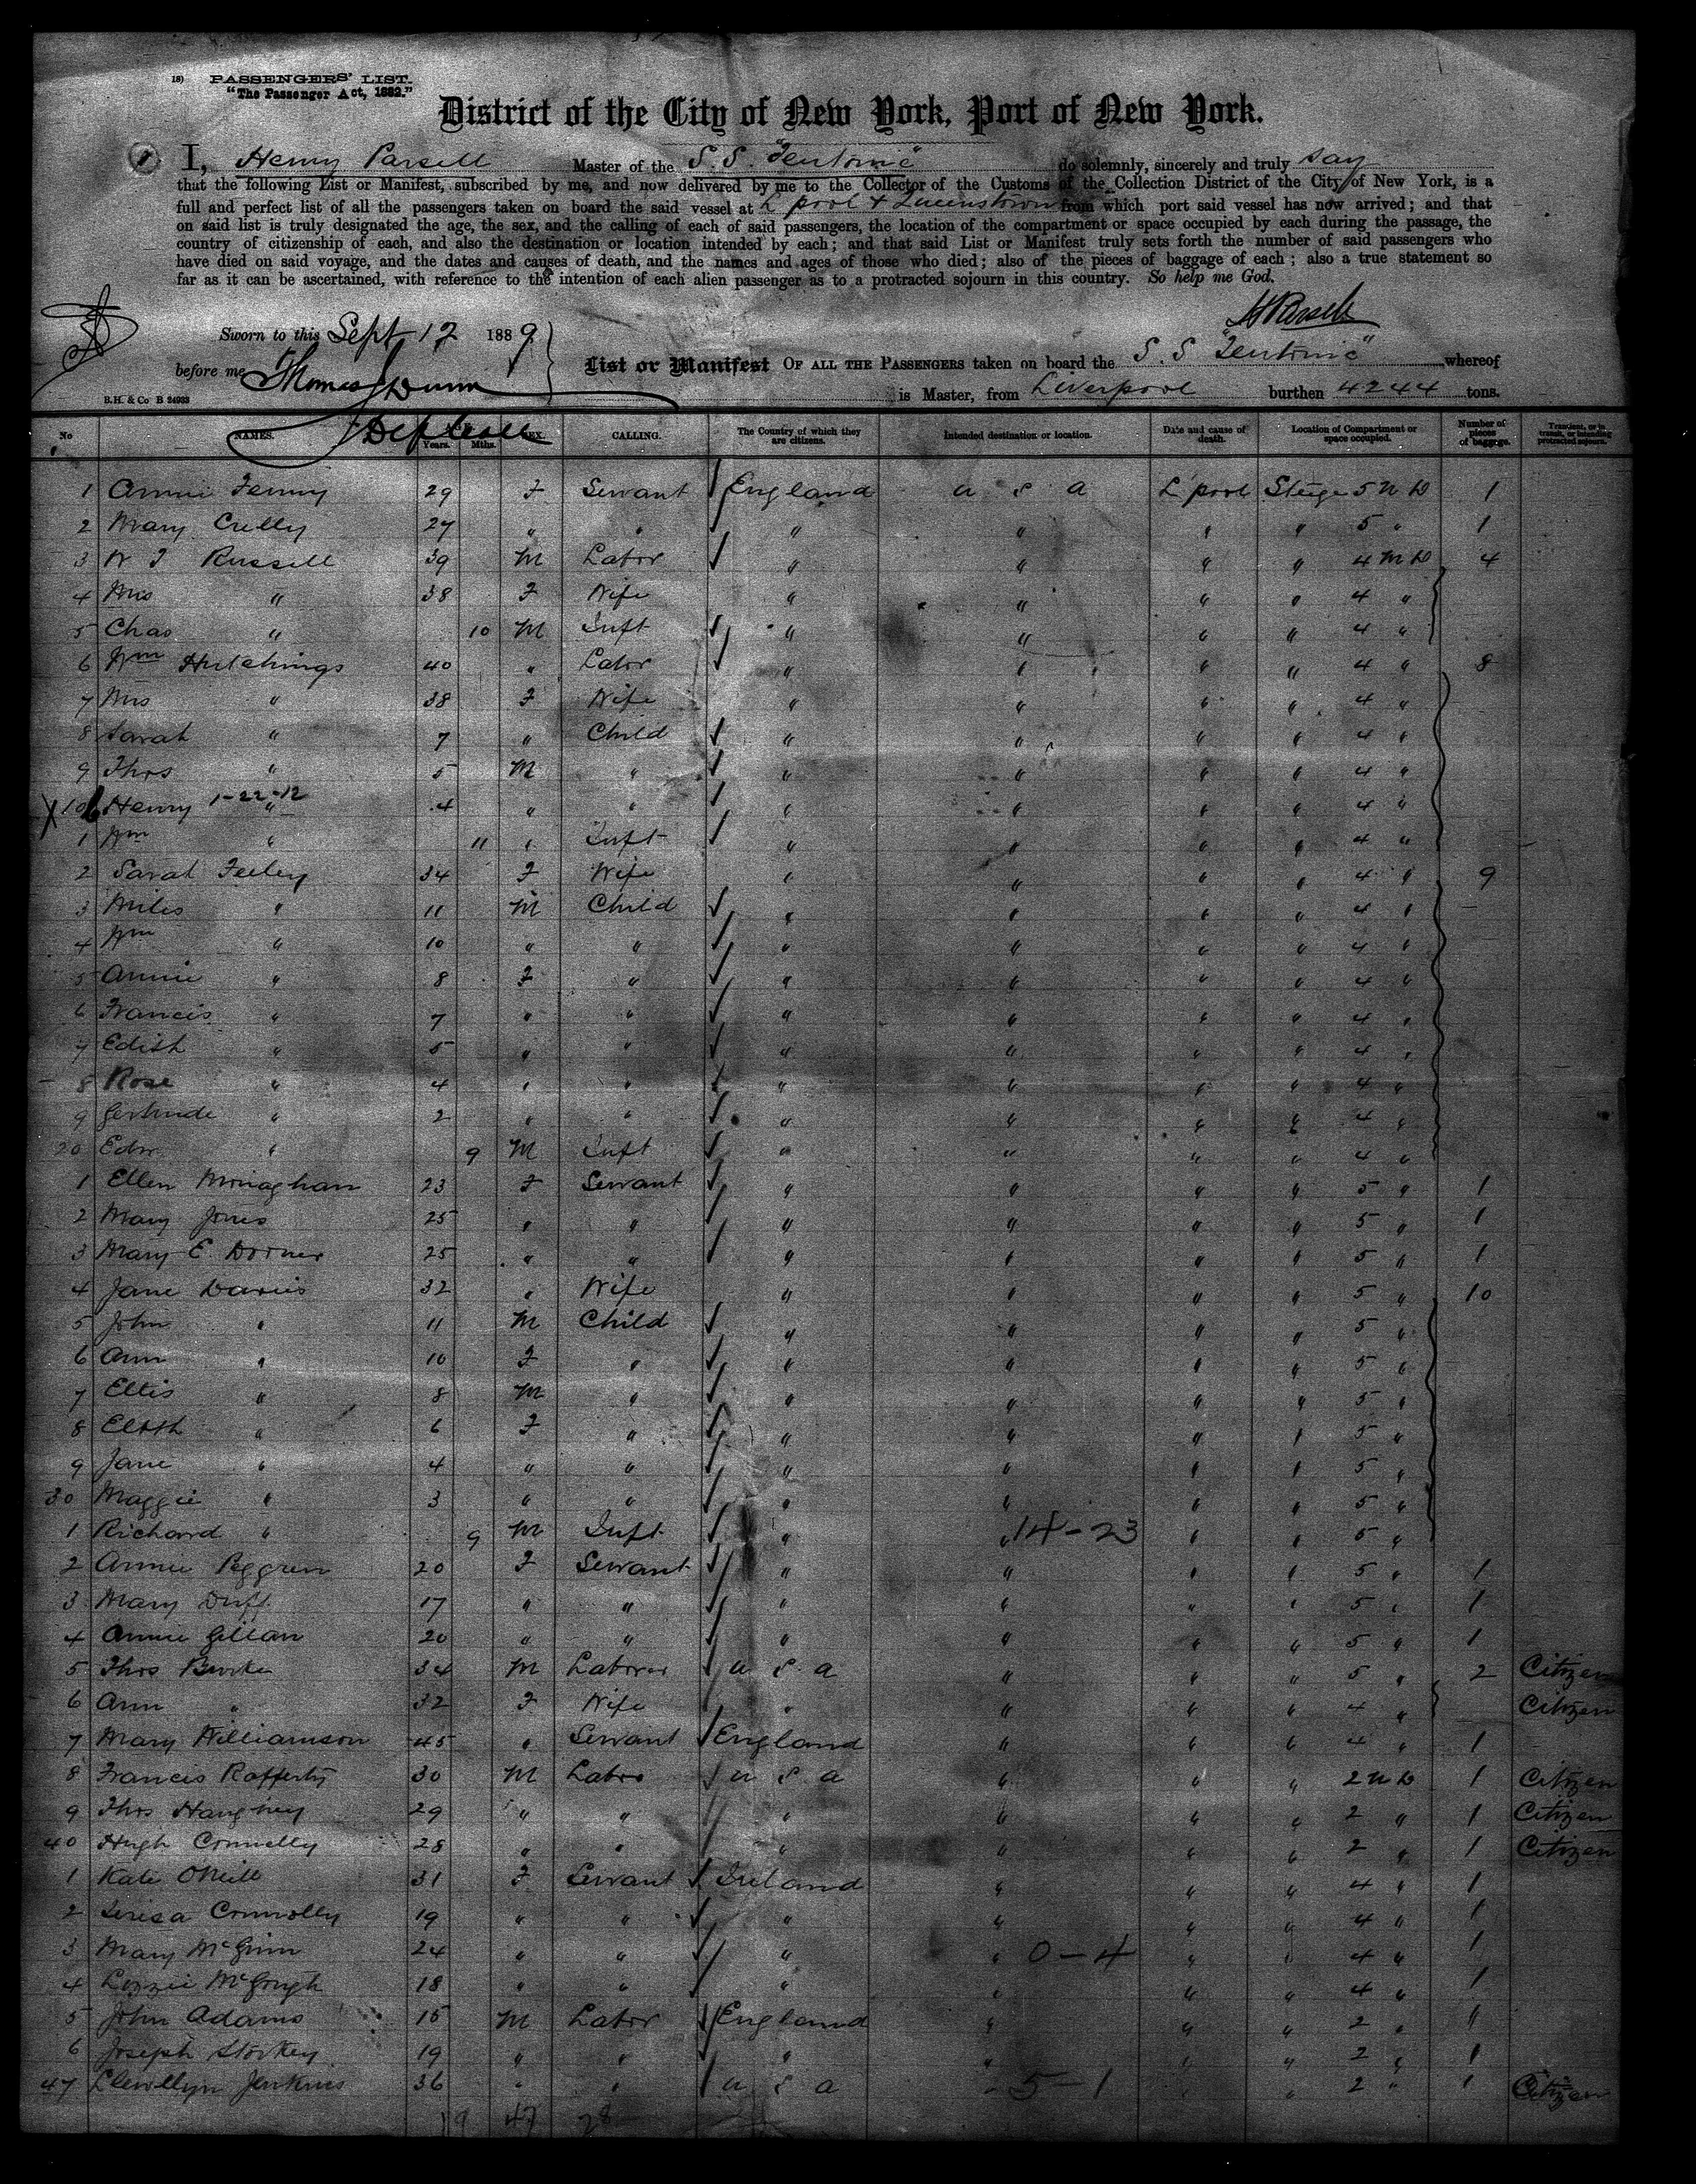 18) PASSENGERS' LIST.
"The Passenger Act, 1882."
District of the City of New York, Port of New York.
1 I, Henry Parsell Master of the S. S. "Teutonic" do solemnly, sincerely and truly say
that the following List or Manifest, subscribed by me, and now delivered by me to the Collector of the Customs of the Collection District of the City of New York, is a
full and perfect list of all the passengers taken on board the said vessel at L'pool + Queenstown from which port said vessel has now arrived; and that
on said list is truly designated the age, the sex, and the calling of each of said passengers, the location of the compartment or space occupied by each during the passage, the
country of citizenship of each, and also the destination or location intended by each; and that said List or Manifest truly sets forth the number of said passengers who
have died on said voyage, and the dates and causes of death, and the names and ages of those who died; also of the pieces of baggage of each; also a true statement so
far as it can be ascertained, with reference to the intention of each alien passenger as to a protracted sojourn in this country. So help me God.
H Parsell
Sworn to this Sept 12 1889
before me Thomas Dunn
List or Manifest OF ALL THE PASSENGERS taken on board the S. S "Teutonic" whereof
is Master, from Liverpool burthen 4244 tons.
B.H. & Co B 24933
No NAMES. Years. Mths. SEX. CALLING. The Country of which they are citizens. Intended destination or location. Date and cause of death. Location of Compartment or space occupied. Number of pieces of baggage. Transient, or in transit, or intending protracted sojourn.
1 Annie Fenny 29 F Servant England U S A L'pool Steige 5 1
2 Mary Crelly 27 " " " " " " 5 " 1
3 W J Russell 39 M Labor " " " " 4 4
4 Mrs " 38 F Wife " " " " 4 "
5 Chas " 10 M Inft " " " " 4 "
6 Wm Hutchings 40 " Labor " " " " 4 " 8
7 Mrs " 38 F Wife " " " " 4 "
8 Sarah " 7 " Child " " " " 4 "
9 Thos " 5 M " " " " " 4 "
X 10 Henry 1-22-12 " 4 " " " " " " 4 "
1 Wm " 11 " Inft " " " " 4 "
2 Sarah Feeley 34 F Wife " " " " 4 " 9
3 Miles " 11 M Child " " " " 4 "
4 Wm " 10 " " " " " " 4 "
5 Annie " 8 F " " " " " 4 "
6 Francis " 7 " " " " " " 4 "
7 Edith " 5 " " " " " " 4 "
8 Rose " 4 " " " " " " 4 "
9 Gertrude " 2 " " " " " " 4 "
20 Edw " 9 M Inft " " " " 4 "
1 Ellen Monaghan 23 F Servant " " " " 5 " 1
2 Mary Jones 25 " " " " " " 5 " 1
3 Mary E. Dorner 25 " " " " " " 5 " 1
4 Jane Davies 32 " Wife " " " " 5 " 10
5 John " 11 M Child " " " " 5 "
6 Ann " 10 F " " " " " 5 "
7 Ellis " 8 M " " " " " 5 "
8 Elbth " 6 F " " " " " 5 "
9 Jane " 4 " " " " " " 5 "
30 Maggie " 3 " " " " " " 5 "
1 Richard " 9 M Inft " " 14-23 " " 5 "
2 Annie Peggren 20 F Servant " " " " 5 " 1
3 Mary Duff 17 " " " " " " 5 " 1
4 Annie Gillan 20 " " " " " " 5 " 1
5 Thos Burke 34 M Laborer U S A " " " 5 " 2 Citizen
6 Ann " 32 F Wife " " " " 4 " Citizen
7 Mary Williamson 45 " Servant England " " " 4 " 1
8 Francis Rafferty 30 M Labor U S A " " " 2 1 Citizen
9 Thos Haughney 29 " " " " " " 2 " 1 Citizen
40 Hugh Connelly 28 " " " " " " 2 " 1 Citizen
1 Kate O'Neill 31 F Servant Ireland " " " 4 " 1
2 Teresa Connolly 19 " " " " " " 4 " 1
3 Mary McGinn 24 " " " " 0-4 " " 4 " 1
4 Lizzie McGough 18 " " " " " " 4 " 1
5 John Adams 15 M Labor England " " " 2 " "
6 Joseph Storkey 19 " " " " " " 2 " 1
47 Llewellyn Jenkins 36 " " U S A " 5-1 " " 2 " 1 Citizen
19 47 28